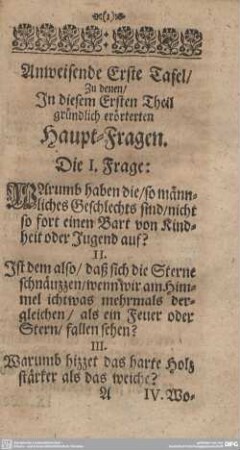 (1)
Anweisende Erste Tafel/
Zu denen/
In diesem Ersten Theil
gründlich erörterten
Haupt-Fragen.
Die I. Frage:
WArumb haben die/ so männ-
liches Geschlechts sind/ nicht
so fort einen Bart von Kind-
heit oder Jugend auf?
II.
Ist dem also/ daß sich die Sterne
schnäuzzen/ wenn wir am Him-
mel ichtwas mehrmals der-
gleichen/ als ein Feuer oder
Stern/ fallen sehen?
III.
Warumb hizzet das harte Holz
stärker als das weiche?
A IV. Wo-